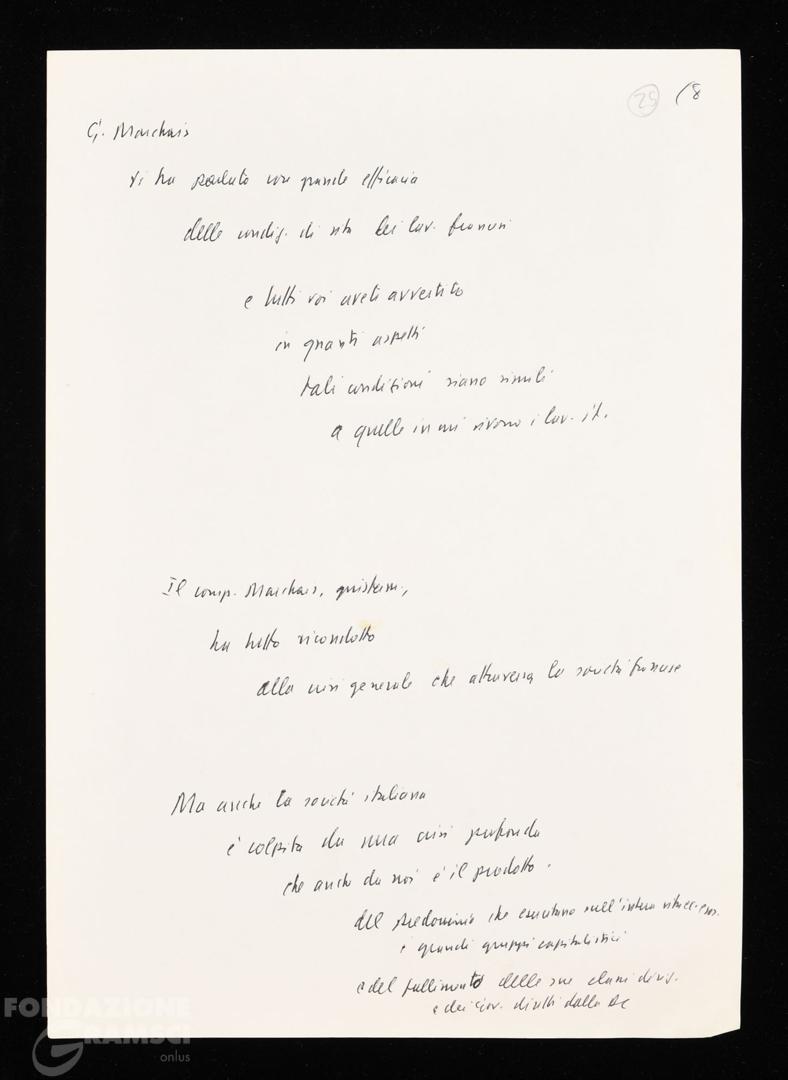 25 (8
G. Marchais
vi ha parlato con grande efficacia
delle condiz. di vita dei lav. francesi
e tutti voi avete avvertito
in quanti aspetti
tali condizioni siano simili
a quelle in cui vivono i lav. it.
Il comp. Marchais, giustam.,
ha tutto ricondotto
alla crisi generale che attraversa la società francese
Ma anche la società italiana
è colpita da una crisi profonda
che anche da noi è il prodotto.
del predominio che esercitano sull'intera
i grandi gruppi capitalistici
e del fallimento delle sue classi dirig.
e dei gov. diretti dalla DC
FONDAZIONE
GRAMSCI
onlus